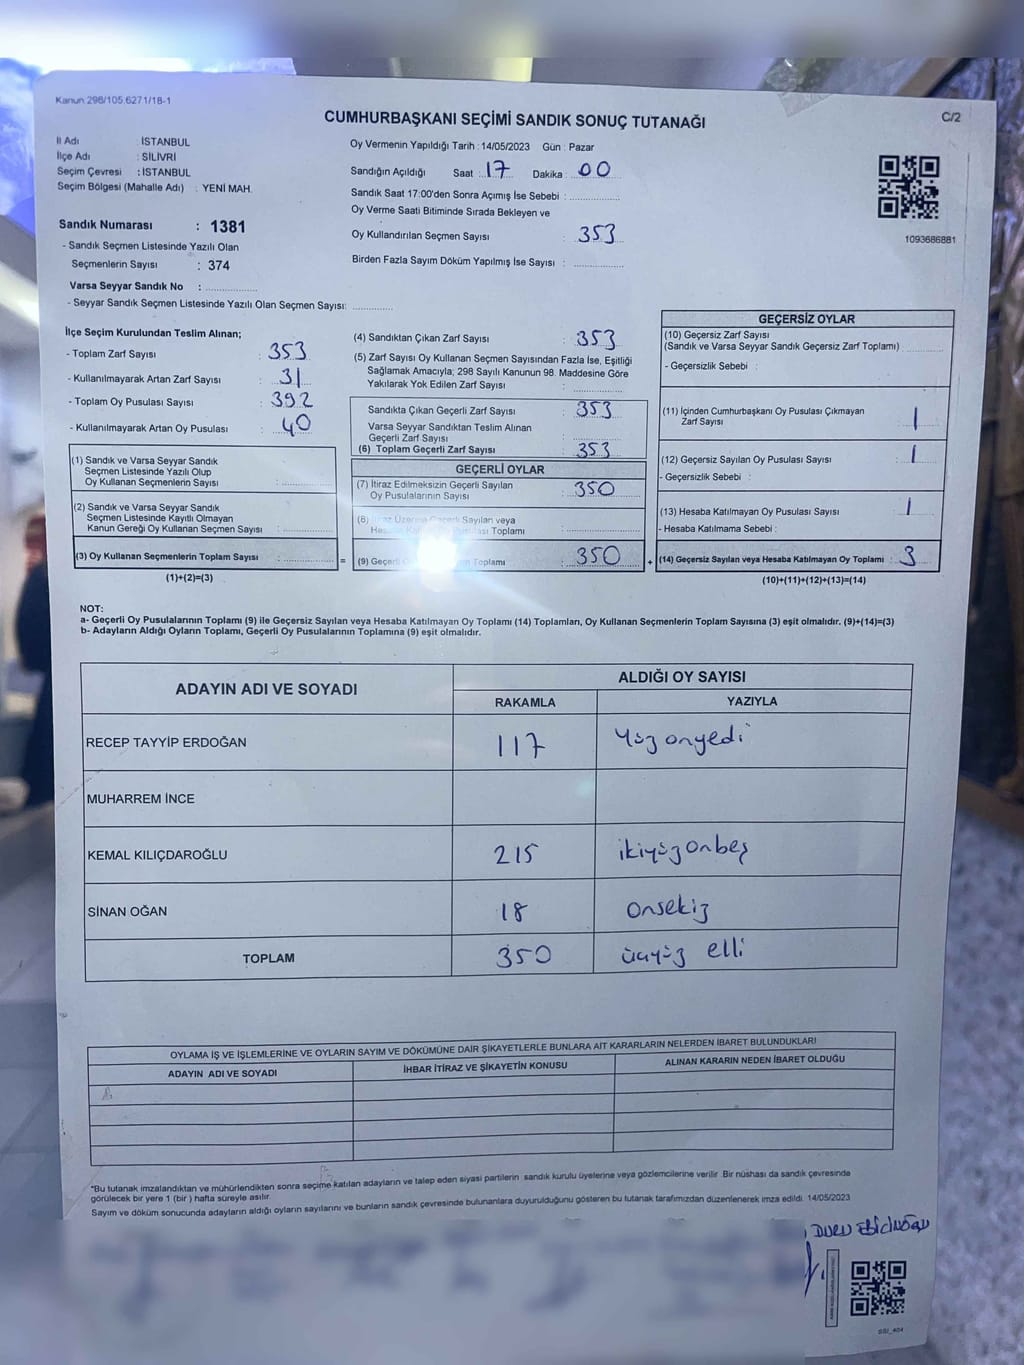 Kanun 298/105.6271/18-1
C/2
CUMHURBAŞKANI SEÇİMİ SANDIK SONUÇ TUTANAĞI
İl Adı : İSTANBUL
İlçe Adı : SİLİVRİ
Seçim Çevresi : İSTANBUL
Seçim Bölgesi (Mahalle Adı) : YENİ MAH.
Sandık Numarası : 1381
- Sandık Seçmen Listesinde Yazılı Olan
Seçmenlerin Sayısı : 374
Varsa Seyyar Sandık No :
- Seyyar Sandık Seçmen Listesinde Yazılı Olan Seçmen Sayısı:
Oy Vermenin Yapıldığı Tarih : 14/05/2023 Gün : Pazar
Sandığın Açıldığı Saat : 17 Dakika : 00
Sandık Saat 17:00'den Sonra Açımış İse Sebebi :
Oy Verme Saati Bitiminde Sırada Bekleyen ve
Oy Kullandırılan Seçmen Sayısı : 353
Birden Fazla Sayım Döküm Yapılmış İse Sayısı :
1093686881
İlçe Seçim Kurulundan Teslim Alınan;
- Toplam Zarf Sayısı : 353
- Kullanılmayarak Artan Zarf Sayısı : 31
- Toplam Oy Pusulası Sayısı : 392
- Kullanılmayarak Artan Oy Pusulası : 40
(1) Sandık ve Varsa Seyyar Sandık
Seçmen Listesinde Yazılı Olup
Oy Kullanan Seçmenlerin Sayısı :
(2) Sandık ve Varsa Seyyar Sandık
Seçmen Listesinde Kayıtlı Olmayan
Kanun Gereği Oy Kullanan Seçmen Sayısı :
(3) Oy Kullanan Seçmenlerin Toplam Sayısı : =
(1)+(2)=(3)
(4) Sandıktan Çıkan Zarf Sayısı : 353
(5) Zarf Sayısı Oy Kullanan Seçmen Sayısından Fazla İse, Eşitliği
Sağlamak Amacıyla; 298 Sayılı Kanunun 98. Maddesine Göre
Yakılarak Yok Edilen Zarf Sayısı :
Sandıkta Çıkan Geçerli Zarf Sayısı : 353
Varsa Seyyar Sandıktan Teslim Alınan
Geçerli Zarf Sayısı :
(6) Toplam Geçerli Zarf Sayısı : 353
GEÇERLİ OYLAR
(7) İtiraz Edilmeksizin Geçerli Sayılan
Oy Pusulalarının Sayısı : 350
(8) İtiraz Üzerine Geçerli Sayılan veya
Toplamı :
(9) Geçerli Toplamı : 350 +
GEÇERSİZ OYLAR
(10) Geçersiz Zarf Sayısı
(Sandık ve Varsa Seyyar Sandık Geçersiz Zarf Toplamı)
- Geçersizlik Sebebi :
(11) İçinden Cumhurbaşkanı Oy Pusulası Çıkmayan
Zarf Sayısı : 1
(12) Geçersiz Sayılan Oy Pusulası Sayısı : 1
- Geçersizlik Sebebi :
(13) Hesaba Katılmayan Oy Pusulası Sayısı : 1
- Hesaba Katılmama Sebebi :
(14) Geçersiz Sayılan veya Hesaba Katılmayan Oy Toplamı : 3
(10)+(11)+(12)+(13)=(14)
NOT:
a- Geçerli Oy Pusulalarının Toplamı (9) ile Geçersiz Sayılan veya Hesaba Katılmayan Oy Toplamı (14) Toplamları, Oy Kullanan Seçmenlerin Toplam Sayısına (3) eşit olmalıdır. (9)+(14)=(3)
b- Adayların Aldığı Oyların Toplamı, Geçerli Oy Pusulalarının Toplamına (9) eşit olmalıdır.
ADAYIN ADI VE SOYADI
ALDIĞI OY SAYISI
RAKAMLA YAZIYLA
RECEP TAYYİP ERDOĞAN 117 Yüzonyedi
MUHARREM İNCE
KEMAL KILIÇDAROĞLU 215 ikiyüzonbeş
SİNAN OĞAN 18 onsekiz
TOPLAM 350 üçyüz elli
OYLAMA İŞ VE İŞLEMLERİNE VE OYLARIN SAYIM VE DÖKÜMÜNE DAİR ŞİKAYETLERLE BUNLARA AİT KARARLARIN NELERDEN İBARET BULUNDUKLARI
ADAYIN ADI VE SOYADI İHBAR İTİRAZ VE ŞİKAYETİN KONUSU ALINAN KARARIN NEDEN İBARET OLDUĞU
*Bu tutanak imzalandıktan ve mühürlendikten sonra seçime katılan adayların ve talep eden siyasi partilerin sandık kurulu üyelerine veya gözlemcilerine verilir. Bir nüshası da sandık çevresinde
görülecek bir yere 1 (bir) hafta süreyle asılır.
Sayım ve döküm sonucunda adayların aldığı oyların sayılarını ve bunların sandık çevresinde bulunanlara duyurulduğunu gösteren bu tutanak tarafımızdan düzenlenerek imza edildi. 14/05/2023